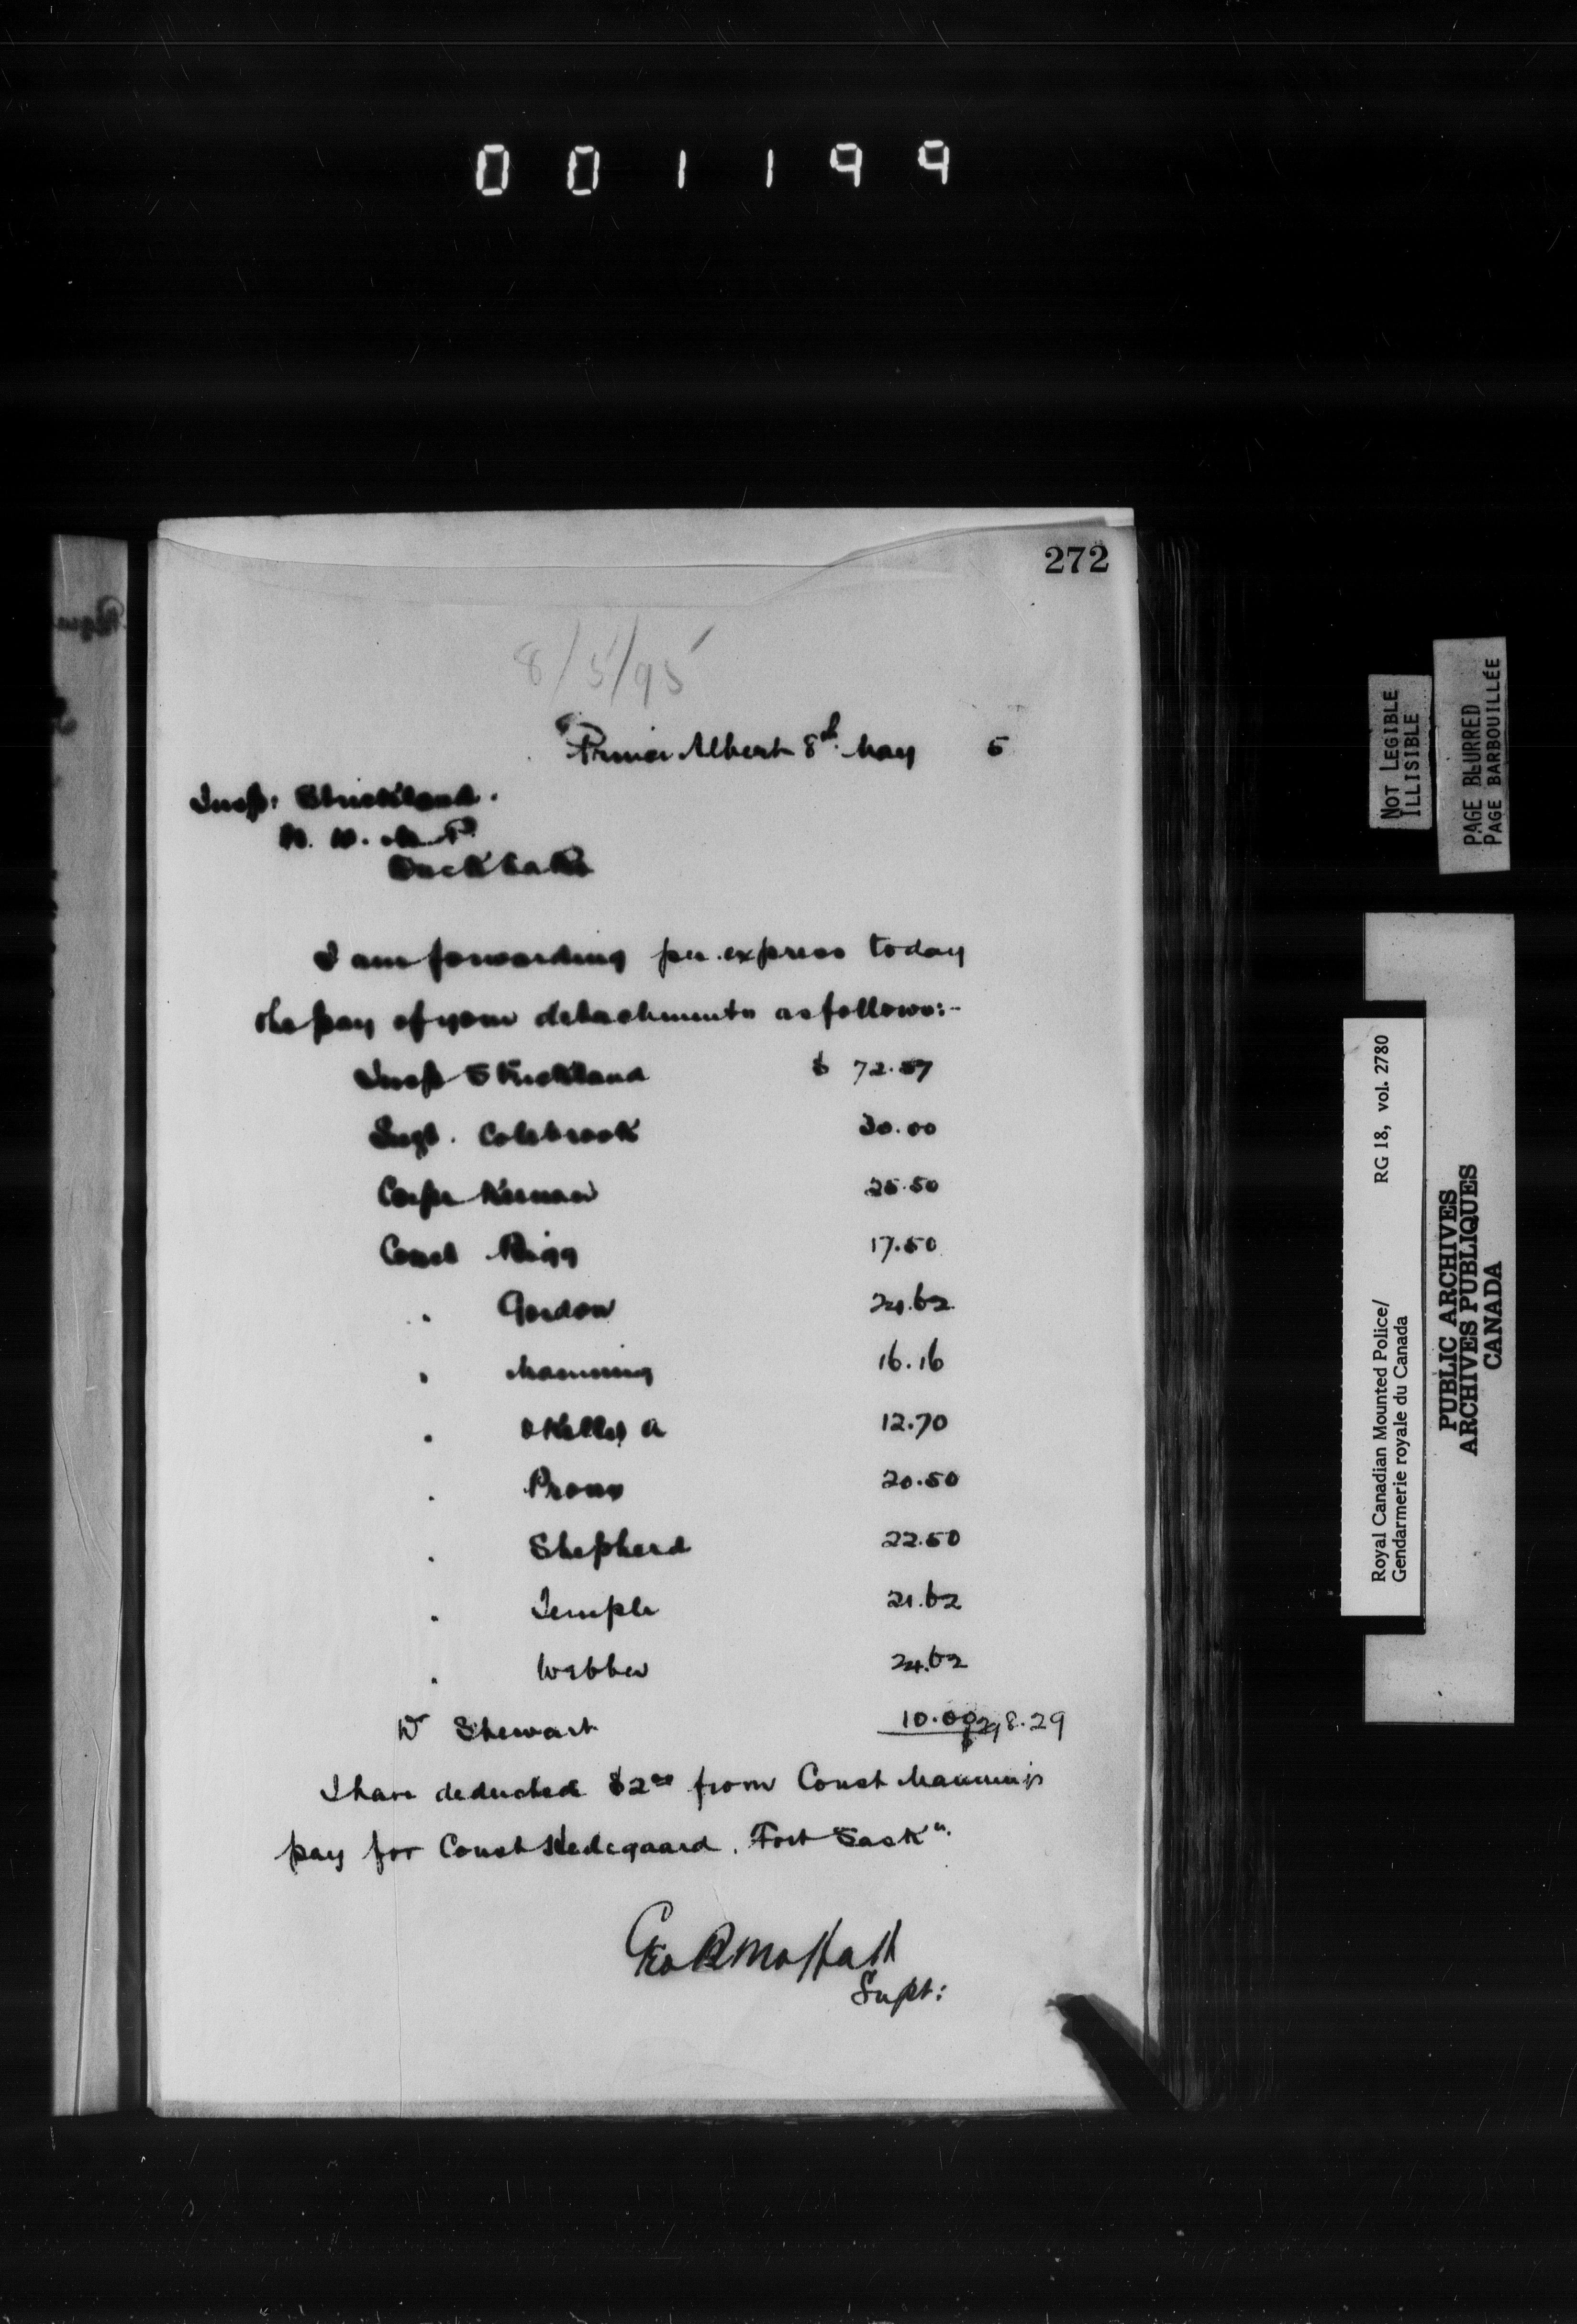 001199
272
8/5/95
Prince Albert 8th May 5
Insp: Strickland.
N. W. M. P
Duck Lake
I am forwarding per express today
the pay of your detachments as follows:-
Insp Strickland $ 72.57
Sergt. Colebrook 30.00
Corpl Keenan 25.50
Const Rigg 17.50
" Gordon 24.62
" Manning 16.16
" OKelly A 12.70
" Proux 20.50
" Shepherd 22.50
" Temple 21.62
" Webber 24.62
Dr Stewart 10.00 $298.29
I have deducted $2.00 from Const Manning's
pay for Const Hedegaard. Fort Saskn.
Geo B Moffatt
Supt:
NOT LEGIBLE
ILLISIBLE
PAGE BLURRED
PAGE BARBOUILLÉE
Royal Canadian Mounted Police/
Gendarmerie royale du Canada
RG 18, vol. 2780
PUBLIC ARCHIVES
ARCHIVES PUBLIQUES
CANADA